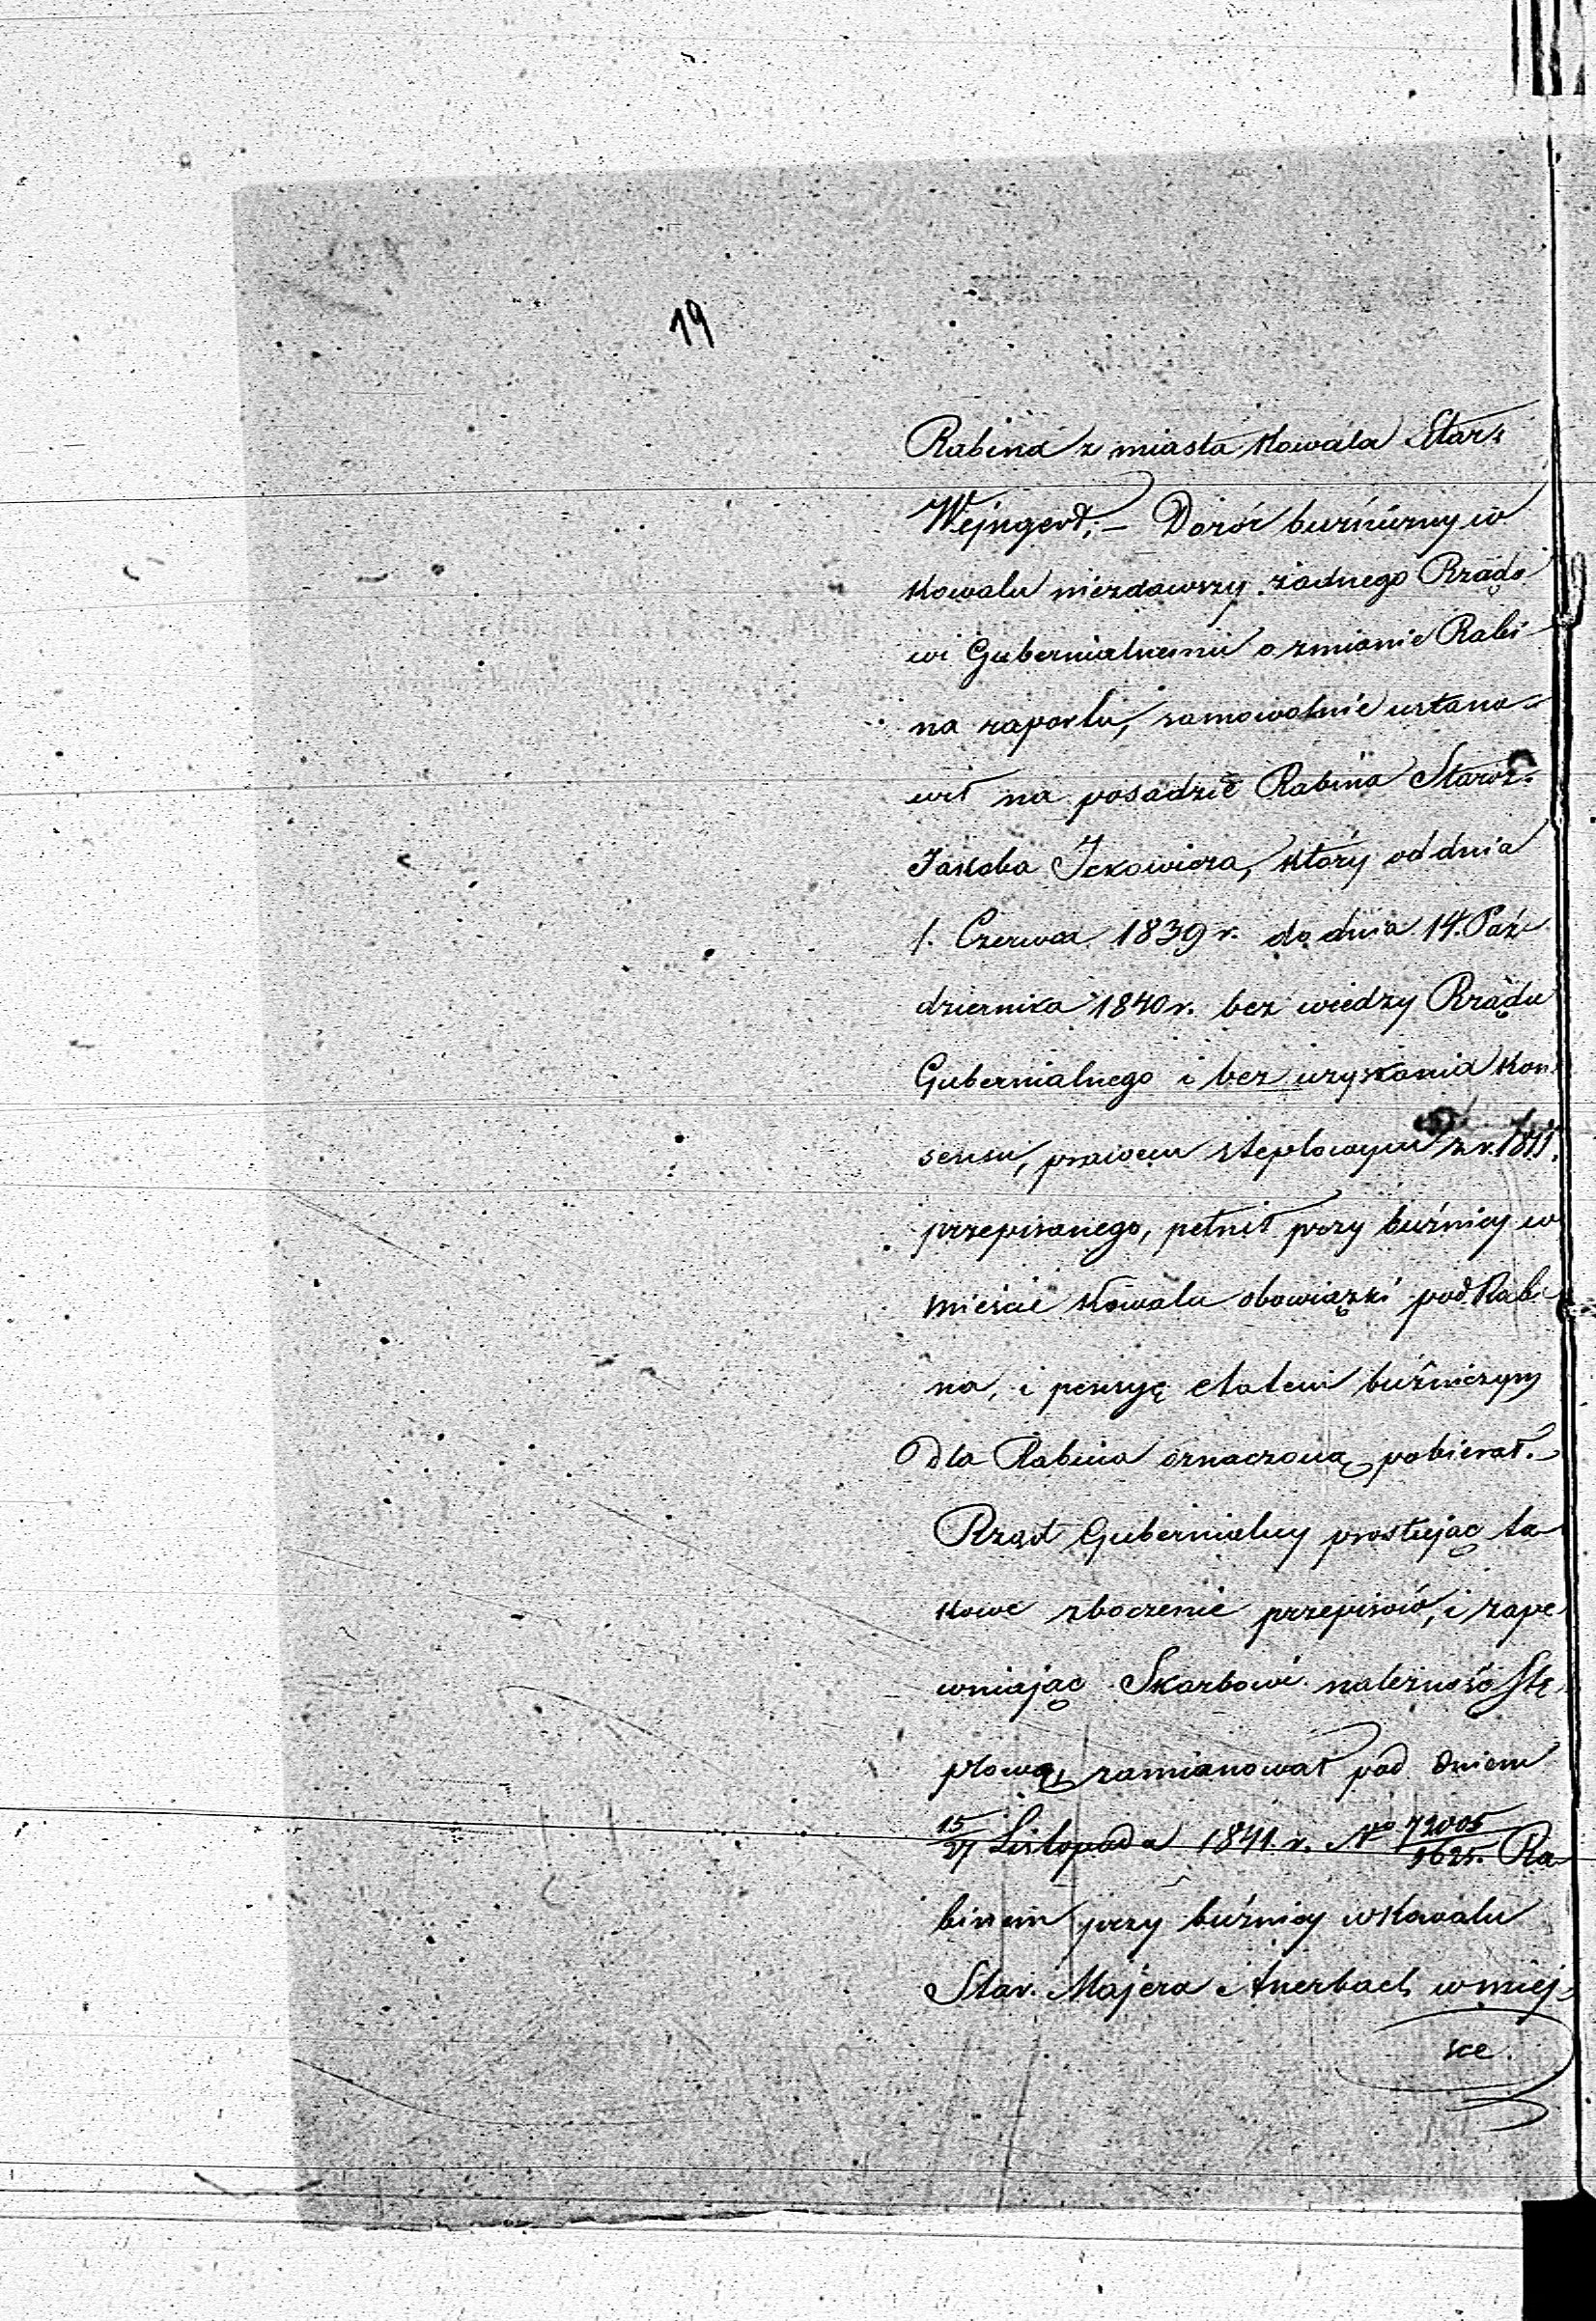 19
Rabina z miasta Kowala Stars
Wejngert; — Dozór bużniczny w
Kowalu niezdawszy żadnego Rządo
wi Gubernialnemu o zmianie Rabi
na raportu, samowolnie ustano=
wił na posadzie Rabina Staroz.
Jakoba Ickowicza, który od dnia
1. Czerwca 1839 r. do dnia 14. Paź
dziernika 1840 r. bez wiedzy Rządu
Gubernialnego i bez uzyskania kon
sensu, prawem steplowym z r. 1811.
przepisanego, pełnił przy bużnicy w
mieście Kowalu obowiązki podRabi
na, i pensyę etatem bużniczym
dla Rabina oznaczoną pobierał.
Rząd Gubernialny prostując ta
kowe zboczenie przepisów, i zape
wniając Skarbowi należność Stę
plową, zamianował pod dniem
15/27 Listopada 1841. r. No 72005/1625. Ra
binem przy bużnicy w Kowalu
Star. Majera Auerbach w miej=
sce.